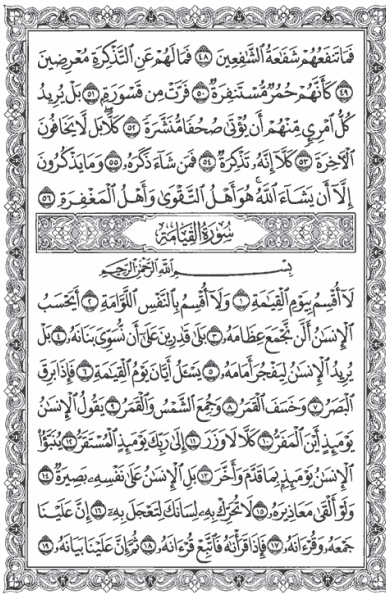 فَمَا تَنفَعُهُمْ شَفَٰعَةُ ٱلشَّٰفِعِينَ ٤٨ فَمَا لَهُمْ عَنِ ٱلتَّذْكِرَةِ مُعْرِضِينَ
٤٩ كَأَنَّهُمْ حُمُرٌ مُّسْتَنفِرَةٌ ٥٠ فَرَّتْ مِن قَسْوَرَةٍ ٥١ بَلْ يُرِيدُ
كُلُّ ٱمْرِئٍ مِّنْهُمْ أَن يُؤْتَىٰ صُحُفًا مُّنَشَّرَةً ٥٢ كَلَّا بَل لَّا يَخَافُونَ
ٱلْءَاخِرَةَ ٥٣ كَلَّآ إِنَّهُۥ تَذْكِرَةٌ ٥٤ فَمَن شَآءَ ذَكَرَهُۥ ٥٥ وَمَا يَذْكُرُونَ
إِلَّآ أَن يَشَآءَ ٱللَّهُ هُوَ أَهْلُ ٱلتَّقْوَىٰ وَأَهْلُ ٱلْمَغْفِرَةِ ٥٦
سُورَةُ القِيَامَةِ
بِسْمِ ٱللَّهِ ٱلرَّحْمَٰنِ ٱلرَّحِيمِ
لَآ أُقْسِمُ بِيَوْمِ ٱلْقِيَٰمَةِ ١ وَلَآ أُقْسِمُ بِٱلنَّفْسِ ٱللَّوَّامَةِ ٢ أَيَحْسَبُ
ٱلْإِنسَٰنُ أَلَّن نَّجْمَعَ عِظَامَهُۥ ٣ بَلَىٰ قَٰدِرِينَ عَلَىٰٓ أَن نُّسَوِّىَ بَنَانَهُۥ ٤ بَلْ
يُرِيدُ ٱلْإِنسَٰنُ لِيَفْجُرَ أَمَامَهُۥ ٥ يَسْـَٔلُ أَيَّانَ يَوْمُ ٱلْقِيَٰمَةِ ٦ فَإِذَا بَرِقَ
ٱلْبَصَرُ ٧ وَخَسَفَ ٱلْقَمَرُ ٨ وَجُمِعَ ٱلشَّمْسُ وَٱلْقَمَرُ ٩ يَقُولُ ٱلْإِنسَٰنُ
يَوْمَئِذٍ أَيْنَ ٱلْمَفَرُّ ١٠ كَلَّا لَا وَزَرَ ١١ إِلَىٰ رَبِّكَ يَوْمَئِذٍ ٱلْمُسْتَقَرُّ ١٢ يُنَبَّؤُا۟
ٱلْإِنسَٰنُ يَوْمَئِذٍۭ بِمَا قَدَّمَ وَأَخَّرَ ١٣ بَلِ ٱلْإِنسَٰنُ عَلَىٰ نَفْسِهِۦ بَصِيرَةٌ ١٤
وَلَوْ أَلْقَىٰ مَعَاذِيرَهُۥ ١٥ لَا تُحَرِّكْ بِهِۦ لِسَانَكَ لِتَعْجَلَ بِهِۦٓ ١٦ إِنَّ عَلَيْنَا
جَمْعَهُۥ وَقُرْءَانَهُۥ ١٧ فَإِذَا قَرَأْنَٰهُ فَٱتَّبِعْ قُرْءَانَهُۥ ١٨ ثُمَّ إِنَّ عَلَيْنَا بَيَانَهُۥ ١٩